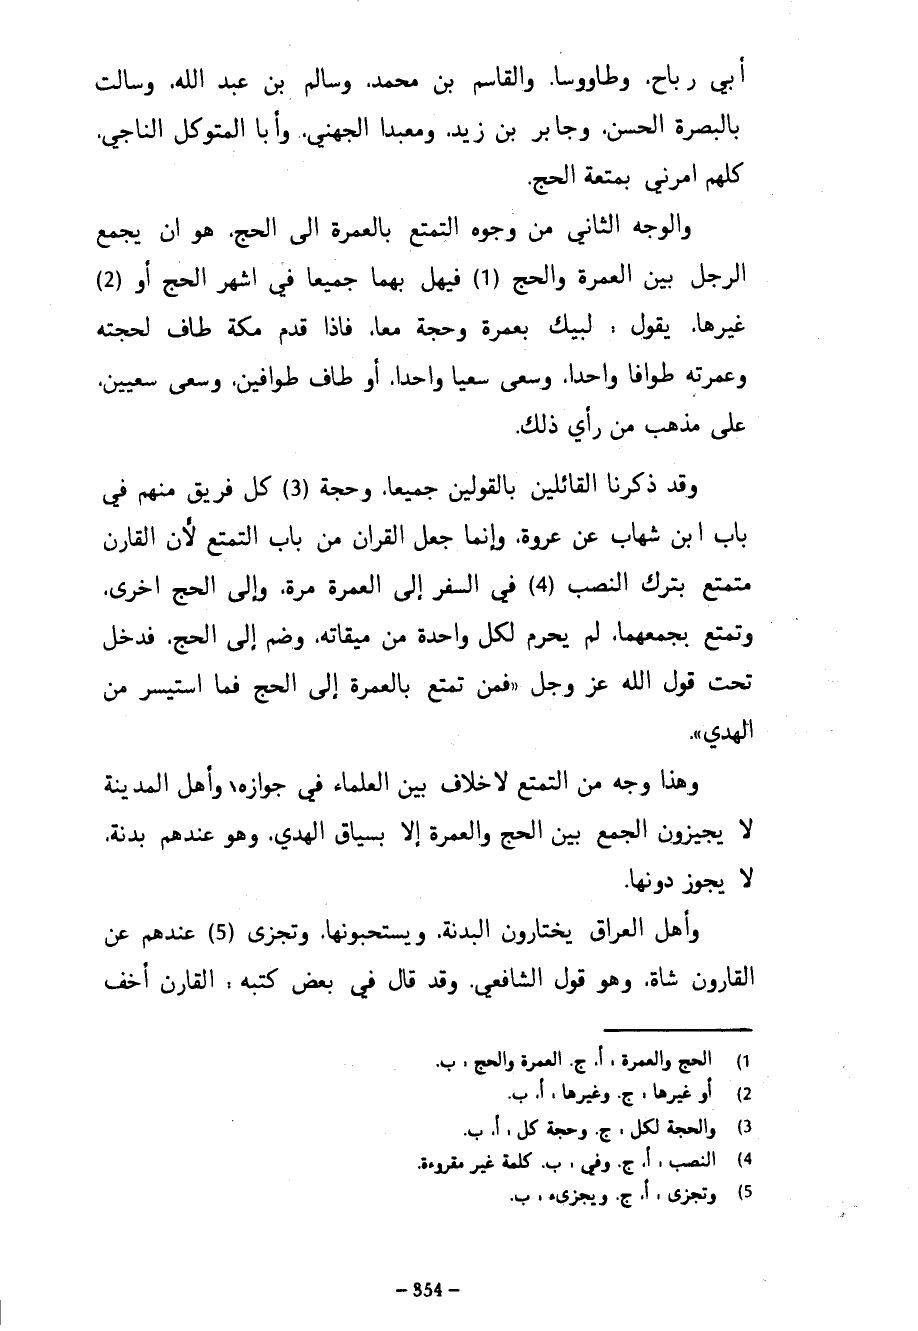 أبي رباح، وطاووسا، والقاسم بن محمد، وسالم بن عبد الله، وسالت
بالبصرة الحسن، وجابر بن زيد، ومعبدا الجهني، وأبا المتوكل الناجي،
كلهم امرني بمتعة الحج.
والوجه الثاني من وجوه التمتع بالعمرة الى الحج، هو ان يجمع
الرجل بين العمرة والحج (1) فيهل بهما جميعا في اشهر الحج أو (2)
غيرها، يقول : لبيك بعمرة وحجة معا، فاذا قدم مكة طاف لحجته
وعمرته طوافا واحدا، وسعى سعيا واحدا، أو طاف طوافين، وسعى سعيين،
على مذهب من رأي ذلك.
وقد ذكرنا القائلين بالقولين جميعا، وحجة (3) كل فريق منهم في
باب ابن شهاب عن عروة، وإنما جعل القران من باب التمتع لأن القارن
متمتع بترك النصب (4) في السفر إلى العمرة مرة، وإلى الحج اخرى،
وتمتع بجمعهما، لم يحرم لكل واحدة من ميقاته، وضم إلى الحج، فدخل
تحت قول الله عز وجل «فمن تمتع بالعمرة إلى الحج فما استيسر من
الهدي».
وهذا وجه من التمتع لاخلاف بين العلماء في جوازه، وأهل المدينة
لا يجيزون الجمع بين الحج والعمرة إلا بسياق الهدي، وهو عندهم بدنة،
لا يجوز دونها.
وأهل العراق يختارون البدنة، ويستحبونها، وتجزى (5) عندهم عن
القارون شاة، وهو قول الشافعي، وقد قال في بعض كتبه : القارن أخف
1) الحج والعمرة : أ، ج. العمرة والحج : ب.
2) أو غيرها : ج. وغيرها : أ، ب.
3) والحجة لكل : ج. وحجة كل : أ، ب.
4) النصب : أ، ج. وفي : ب. كلمة غير مقروءة.
5) وتجزى : أ، ج. ويجزىء : ب.
– 354 –